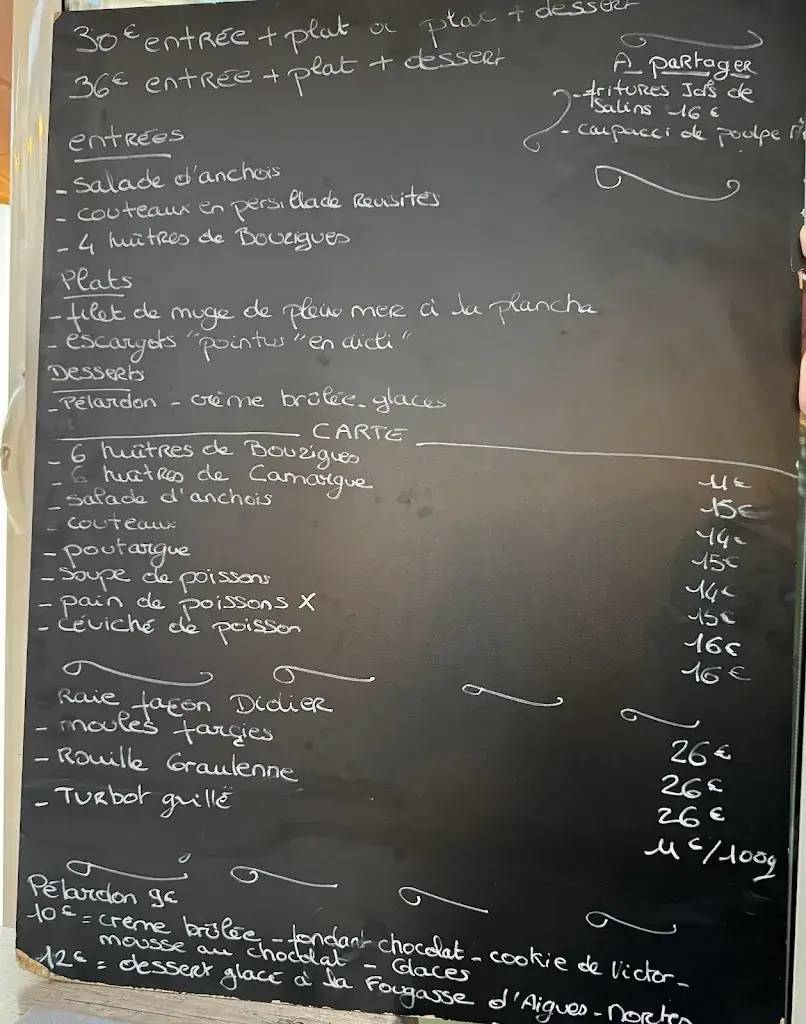 30€ entrée + plat ou plat + dessert
36€ entrée + plat + dessert
A partager
- fritures Jols de
Salins 16€
- carpacci de poulpe
entrées
- salade d'anchois
- couteaux en persillade Revisités
- 4 huîtres de Bouzigues
Plats
- filet de muge de pleine mer à la plancha
- escargots "pointus" en
Desserts
- Pélardon - crème brûlée - glaces
CARTE
- 6 huîtres de Bouzigues 11€
- 6 huîtres de Camargue 15€
- salade d'anchois 14€
- couteaux 15€
- poutargue 14€
- soupe de poissons 15€
- pain de poissons X 16€
- céviché de poisson 16€
Raie façon Didier 26€
- moules farcies 26€
- Rouille Graulenne 26€
- Turbot grillé 11€/100g
Pélardon 9€
10€ = crème brûlée - fondant chocolat - cookie de Victor -
mousse au chocolat - Glaces
12€ = dessert glacé à la Fougasse d'Aigues-Mortes